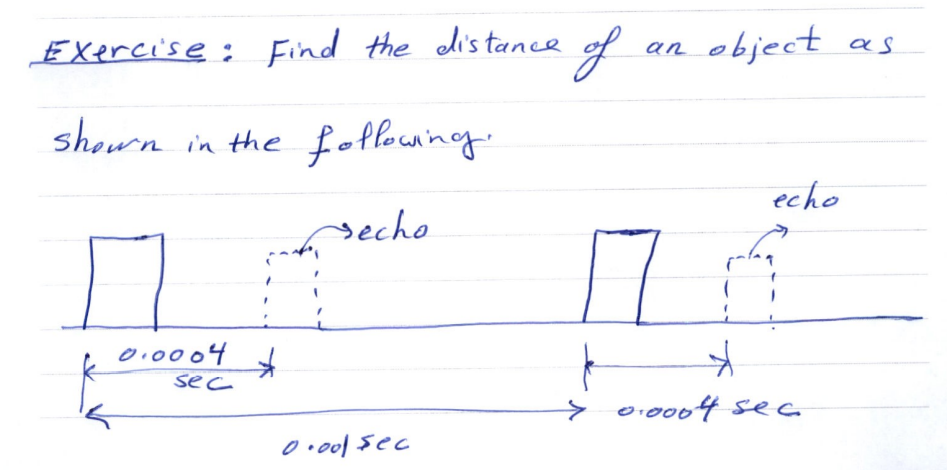 Exercise: Find the distance of an object as
shown in the following.
echo
echo
0.0004
sec
0.0004 sec
0.001 sec